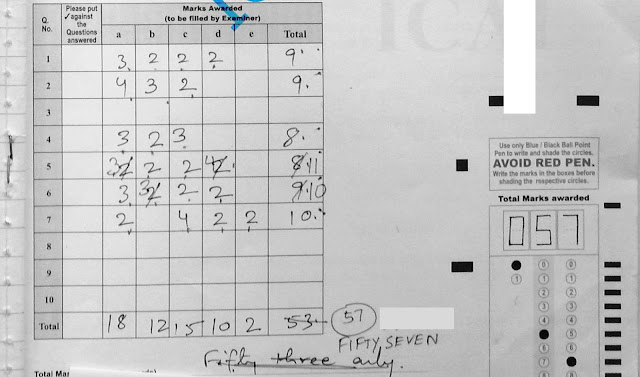 Q. No.
Please put ✓ against the Questions answered
Marks Awarded
(to be filled by Examiner)
a b c d e Total
1 3 2 2 2 9
2 4 3 2 9
3
4 3 2 3 8
5 3 2 2 2 4 2 8 11
6 3 3 2 2 2 9 10
7 2 4 2 2 10
8
9
10
Total 18 12 15 10 2 53 57
FIFTY SEVEN
Fifty three only.
Use only Blue / Black Ball Point
Pen to write and shade the circles.
AVOID RED PEN.
Write the marks in the boxes before
shading the respective circles.
Total Marks awarded
0 5 7
0 0
1 1 1
2 2
3 3
4 4
5
6 6
7
Total Mar